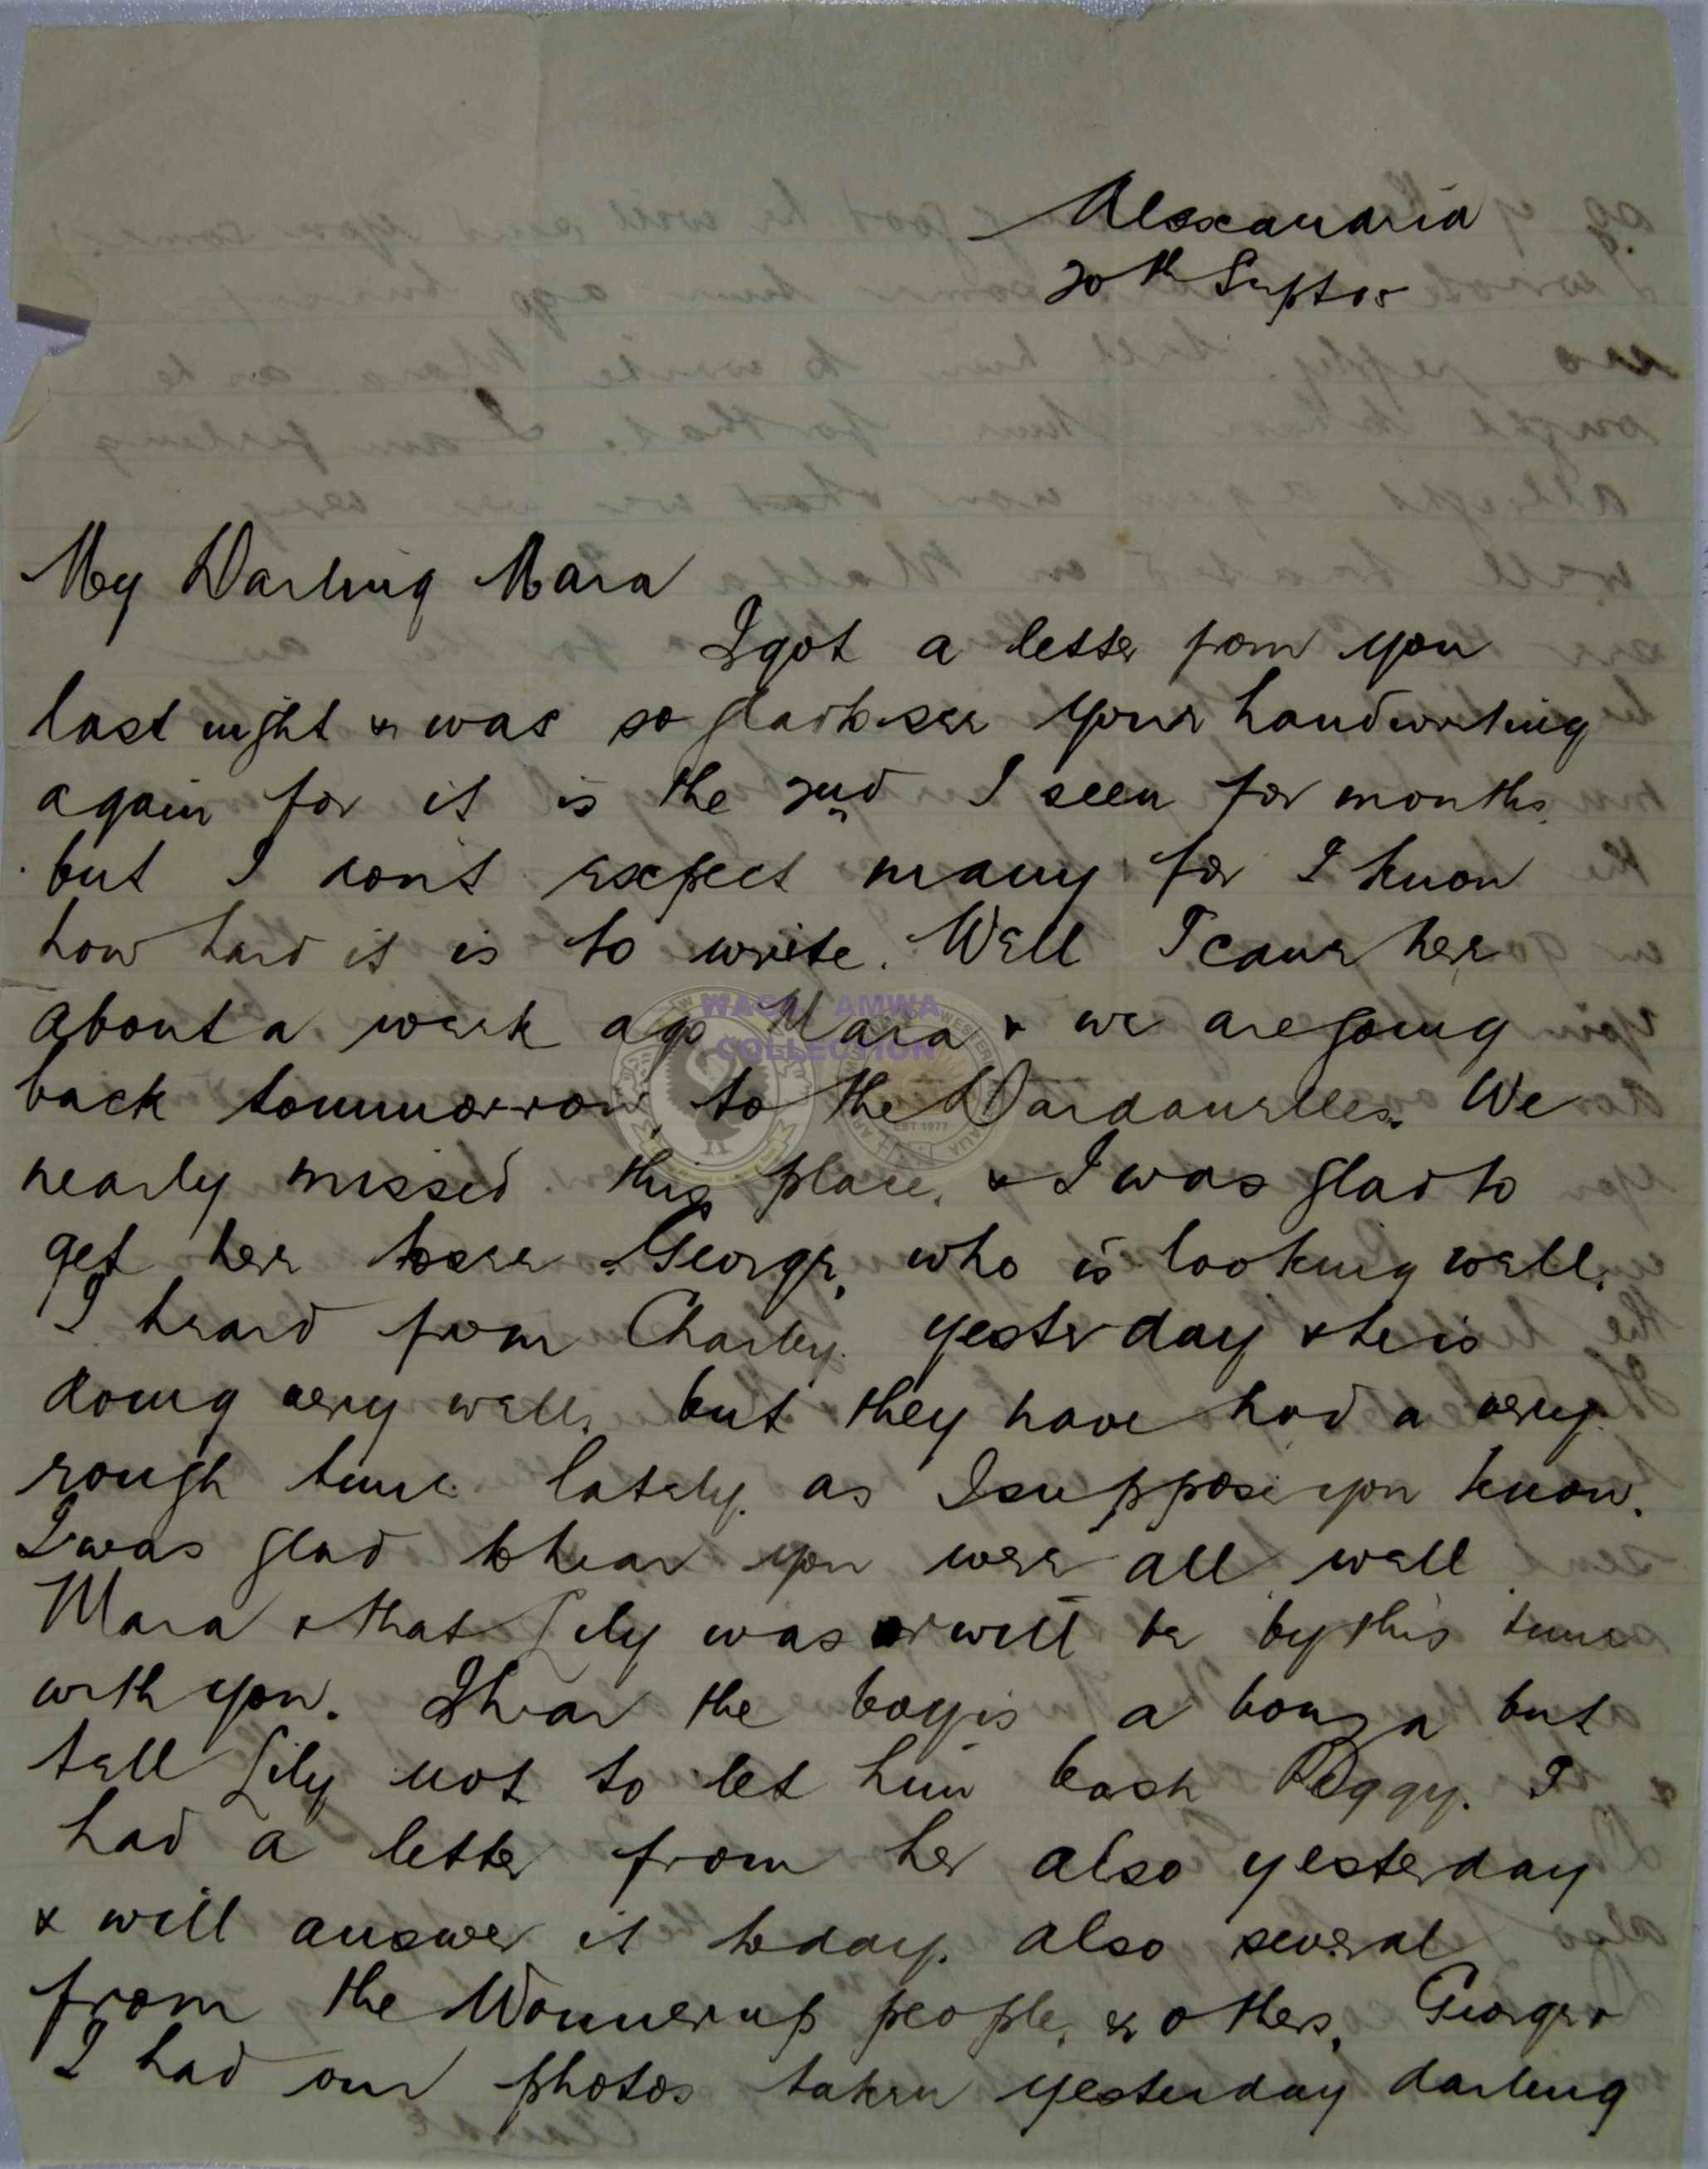 Alexandria
20th Septbr
My Darling Mara
I got a letter from you
last night & was so glad to see your handwriting
again for it is the 2nd I seen for months.
but I dont expect many for I know
how hard it is to write. Well I came here
about a week ago Mara & we are going
back tommorrow to the Dardanelles. We
nearly missed this place, & I was glad to
get here to see George, who is looking well.
I heard from Charley. yesterday & he is
doing very well, but they have had a very
rough time lately. as I suppose you know.
I was glad to hear you were all well
Mara & that Lily was or will be by this time
with you. I hear the boy is a bonza but
tell Lily not to let him bash Peggy. I
had a letter from her also yesterday
& will answer it today. also several
from the Wonnerup people, & others, George &
I had our photos taken yesterday darling
WACA AMWA
COLLECTION
EST 1977